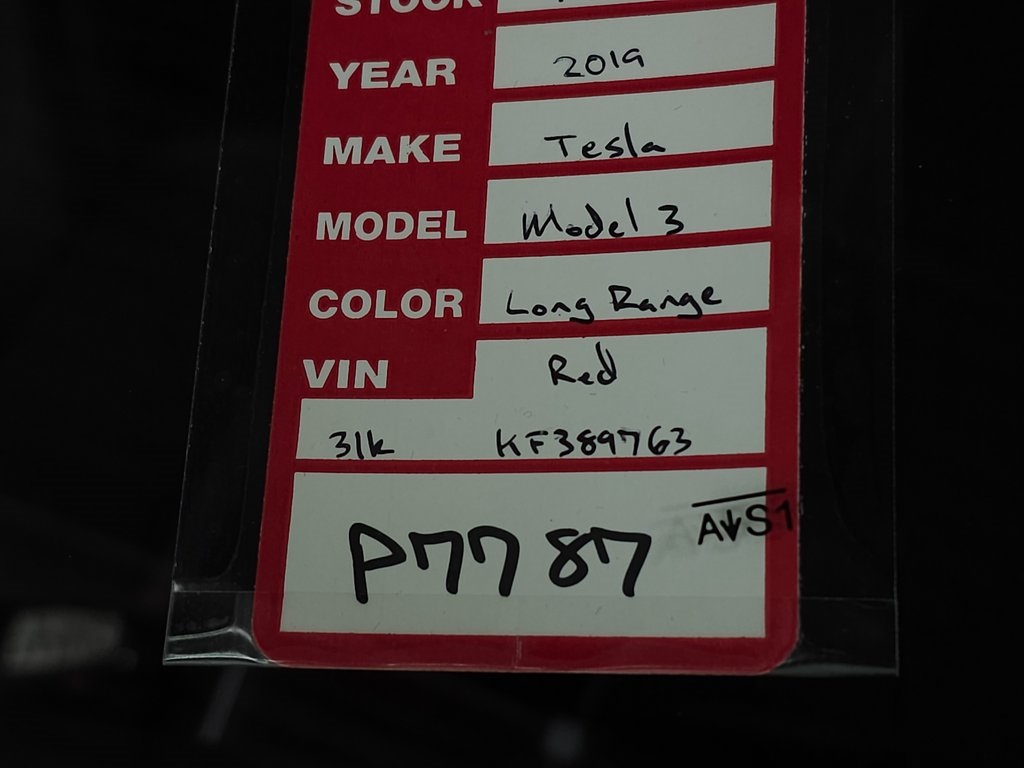 STOCK
YEAR 2019
MAKE Tesla
MODEL Model 3
COLOR Long Range
VIN Red
31k KF389763
P7787
A↓S1